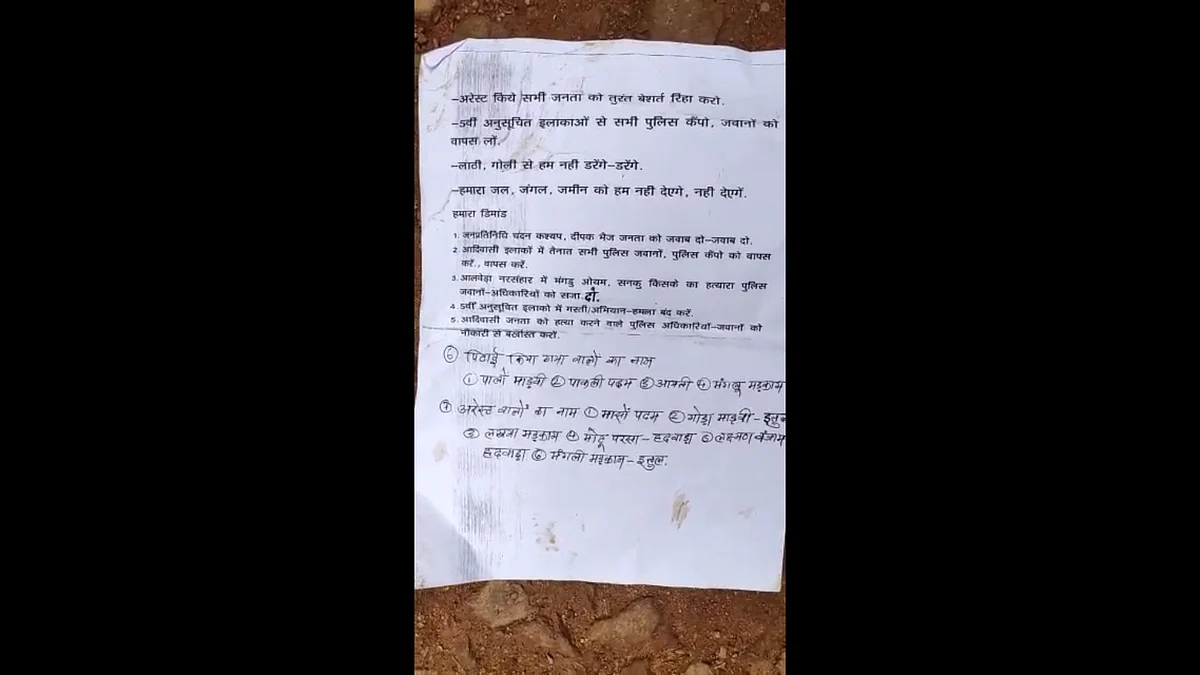 –अरेस्ट किये सभी जनता को तुरंत बेशर्त रिहा करो.
–5वीं अनुसूचित इलाकाओं से सभी पुलिस कैंपो, जवानों को
वापस लों.
–लाठी, गोली से हम नही डरेंगे–डरेंगे.
–हमारा जल, जंगल, जमीन को हम नही देएगे, नही देएगें.
हमारा डिमांड
1. जनप्रतिनिधि चंदन कश्यप, दीपक बैज जनता को जवाब दो–जवाब दो.
2. आदिवासी इलाकों में तेनात सभी पुलिस जवानों, पुलिस कैंपो को वापस
करें., वापस करें.
3. आलवेड़ा नरसंहार में भंगडु ओयम, सनकु किसके का हत्यारा पुलिस
जवानों–अधिकारियों को सजा दो.
4. 5वीं अनुसूचित इलाको में गस्ती/अभियान–हमला बंद करें.
5. आदिवासी जनता को हत्या करने वाले पुलिस अधिकारियों–जवानों को
नौकारी से बर्खास्त करो.
⑥ पिटाई किया गया वालों का नाम
① पाली माड़वी ② पाकली पदम ③ आयती ④ मंगलू मड़काम
⑦ अरेस्ट वालों का नाम ① मासों पदम ② गोड़ा माड़वी – इतुल
③ लखमा मड़काम ④ मोटू परसा – हदवाड़ा ⑤ लक्ष्मण वंजाम
हदवाड़ा ⑥ मंगली मड़काम – इतुल.